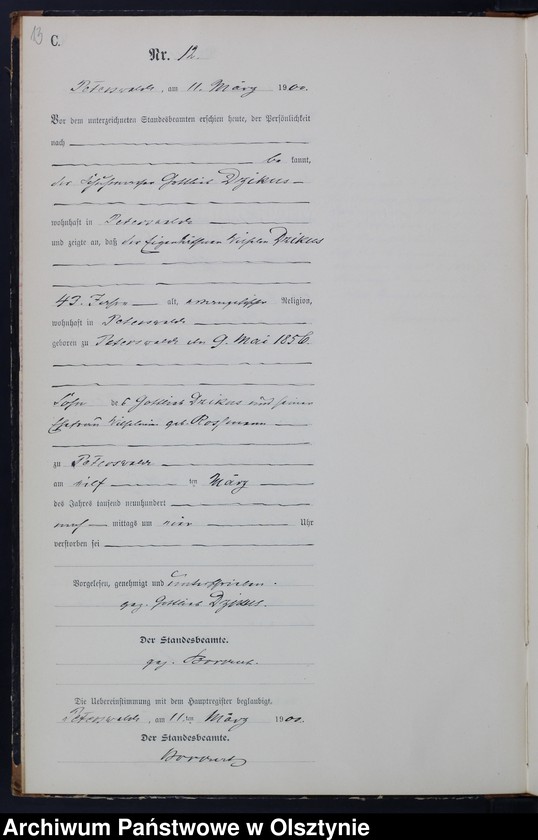 13
C.
Nr. 12.
Peterswalde, am 11. März 1900.
Vor dem unterzeichneten Standesbeamten erschien heute, der Persönlichkeit
nach
be kannt,
der Gottlieb Dzikus
wohnhaft in Peterswalde
und zeigte an, daß der Eigenkäthner Wilhelm Dzikus
43 Jahre alt, evangelischer Religion,
wohnhaft in Peterswalde
geboren zu Peterswalde den 9. Mai 1856
Sohn des Gottlieb Dzikus und seiner
Ehefrau Wilhelmine geb. Rossmann
zu Peterswalde
am elf ten März
des Jahres tausend neunhundert
nach mittags um vier Uhr
verstorben sei
Vorgelesen, genehmigt und unterschrieben.
gez. Gottlieb Dzikus.
Der Standesbeamte.
gez.
Die Uebereinstimmung mit dem Hauptregister beglaubigt.
Peterswalde, am 11 ten März 1900.
Der Standesbeamte.
Archiwum Państwowe w Olsztynie